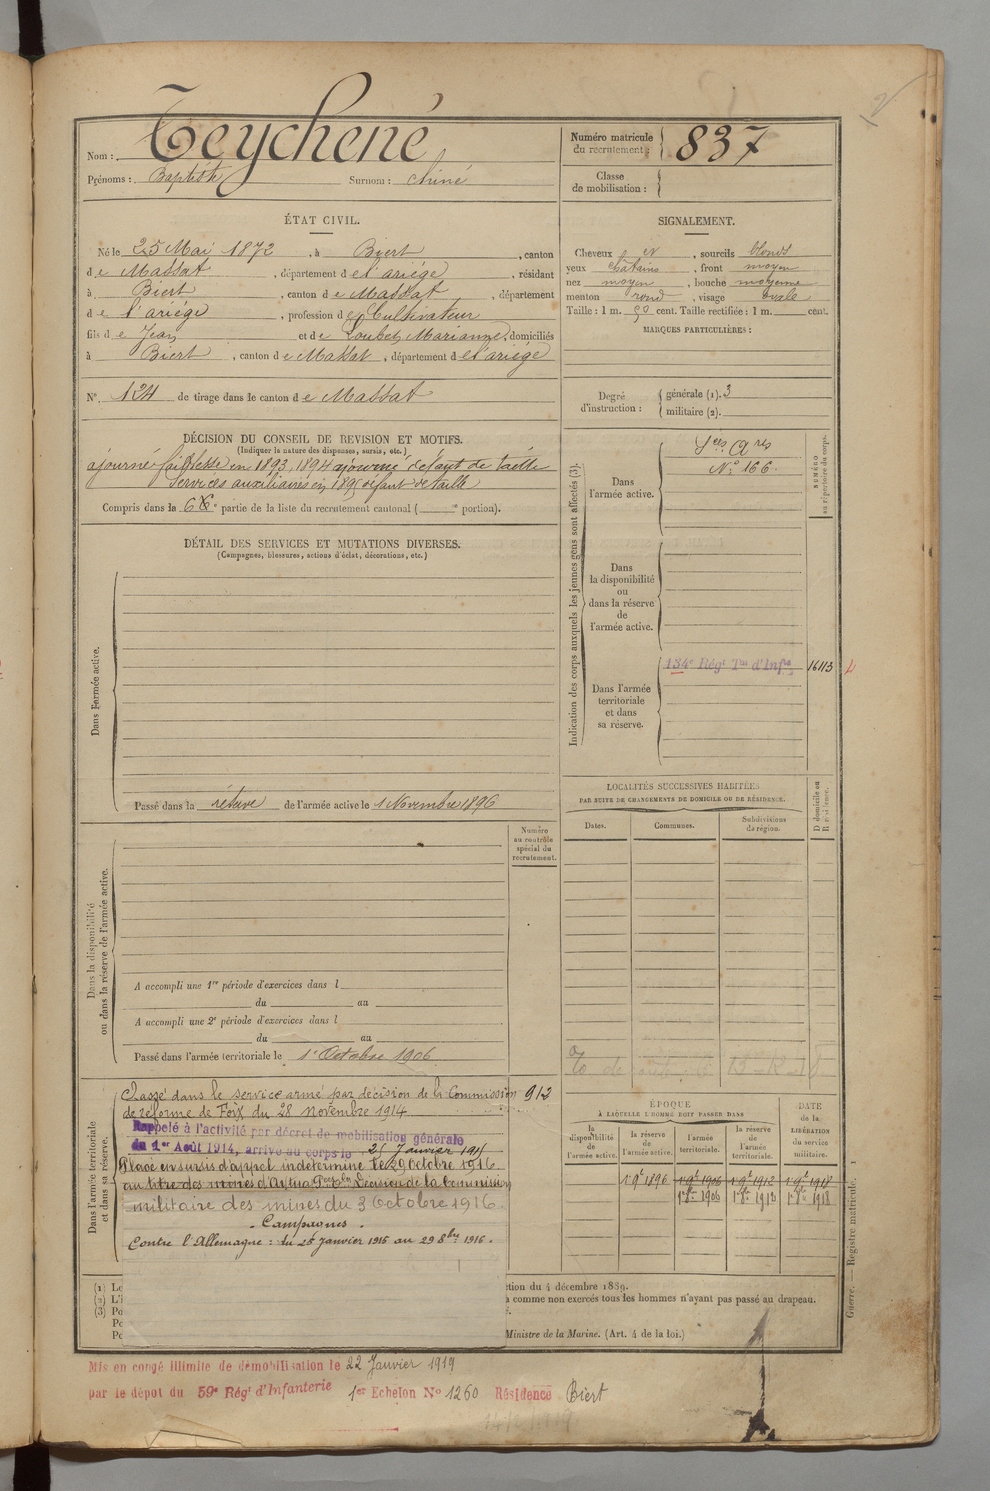 Nom : Teychené
Prénoms : Baptiste Surnom : chiné
Numéro matricule du recrutement : 837
Classe de mobilisation :
ÉTAT CIVIL.
Né le 25 Mai 1872, à Biert, canton
de Massat, département de l'ariége, résidant
à Biert, canton de Massat, département
de l'ariége, profession de Cultivateur
fils de Jean et de Loubet Marianne, domiciliés
à Biert, canton de Massat, département de l'ariége
N° 124 de tirage dans le canton de Massat
SIGNALEMENT.
Cheveux et, sourcils blonds
yeux châtains, front moyen
nez moyen, bouche moyenne
menton rond, visage ovale
Taille : 1 m. 50 cent. Taille rectifiée : 1 m. cent.
MARQUES PARTICULIÈRES :
Degré d'instruction : générale (1). 3
militaire (2).
DÉCISION DU CONSEIL DE REVISION ET MOTIFS.
(Indiquer la nature des dispenses, sursis, etc.)
ajourné faiblesse en 1893, 1894 ajourné défaut de taille
Services auxiliaires en 1895 défaut de taille
Compris dans la 6e partie de la liste du recrutement cantonal ( e portion).
DÉTAIL DES SERVICES ET MUTATIONS DIVERSES.
(Campagnes, blessures, actions d'éclat, décorations, etc.)
Dans l'armée active.
Passé dans la réserve de l'armée active le 1 Novembre 1896
Indication des corps auxquels les jeunes gens sont affectés (3).
NUMÉRO au répertoire du corps.
Dans l'armée active.
Sces Ares
N° 166.
Dans la disponibilité ou dans la réserve de l'armée active.
Dans l'armée territoriale et dans sa réserve.
134e Régt Tal d'Infie
16113
LOCALITÉS SUCCESSIVES HABITÉES
PAR SUITE DE CHANGEMENTS DE DOMICILE OU DE RÉSIDENCE.
D domicile ou R résidence.
Dates. Communes. Subdivisions de région.
Dans la disponibilité ou dans la réserve de l'armée active.
Numéro au contrôle spécial du recrutement.
A accompli une 1re période d'exercices dans l
du au
A accompli une 2e période d'exercices dans l
du au
Passé dans l'armée territoriale le 1er Octobre 1906
Dans l'armée territoriale et dans sa réserve.
Classé dans le service armé par décision de la Commission 913
de réforme de Foix du 28 novembre 1914
Rappelé à l'activité par décret de mobilisation générale
du 1er Août 1914, arrivé au corps le 25 Janvier 1915
Placé en sursis d'appel indéterminé le 29 Octobre 1916
au titre des mines d'Décision de la Commission
militaire des mines du 3 Octobre 1916
Campagnes
Contre l'Allemagne : du 25 Janvier 1915 au 29 8bre 1916.
ÉPOQUE
À LAQUELLE L'HOMME DOIT PASSER DANS
la disponibilité de l'armée active. la réserve de l'armée active. l'armée territoriale. la réserve de l'armée territoriale.
DATE de la LIBÉRATION du service militaire.
1 9bre 1896 1 9bre 1906 1 9bre 1912 1 9bre 1918
1 8bre 1906 1 8bre 1912 1 8bre 1918
(1) Le
(2) L'i
(3) Po
Po
Pc
tion du 4 décembre 1889.
comme non exercés tous les hommes n'ayant pas passé au drapeau.
Ministre de la Marine. (Art. 4 de la loi.)
Guerre. — Registre matricule.
Mis en congé illimité de démobilisation le 22 Janvier 1919
par le dépôt du 59e Régt d'Infanterie 1er Echelon N° 1260 Résidence Biert